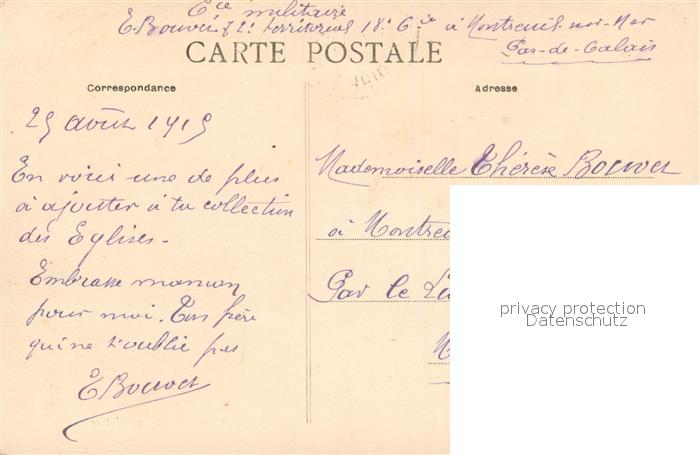 Cie militaire
E. Bouvet 72e territorial 18e Cie à Montreuil-sur-Mer
Pas-de-Calais
CARTE POSTALE
Correspondance
Adresse
25 août 1915
En voici une de plus
à ajouter à ta collection
des Eglises -
Embrasse maman
pour moi. Ton père
qui ne t'oublie pas
E Bouvet
Mademoiselle Thérèse Bouvet
à Montreu
Par le Lu
privacy protection
Datenschutz